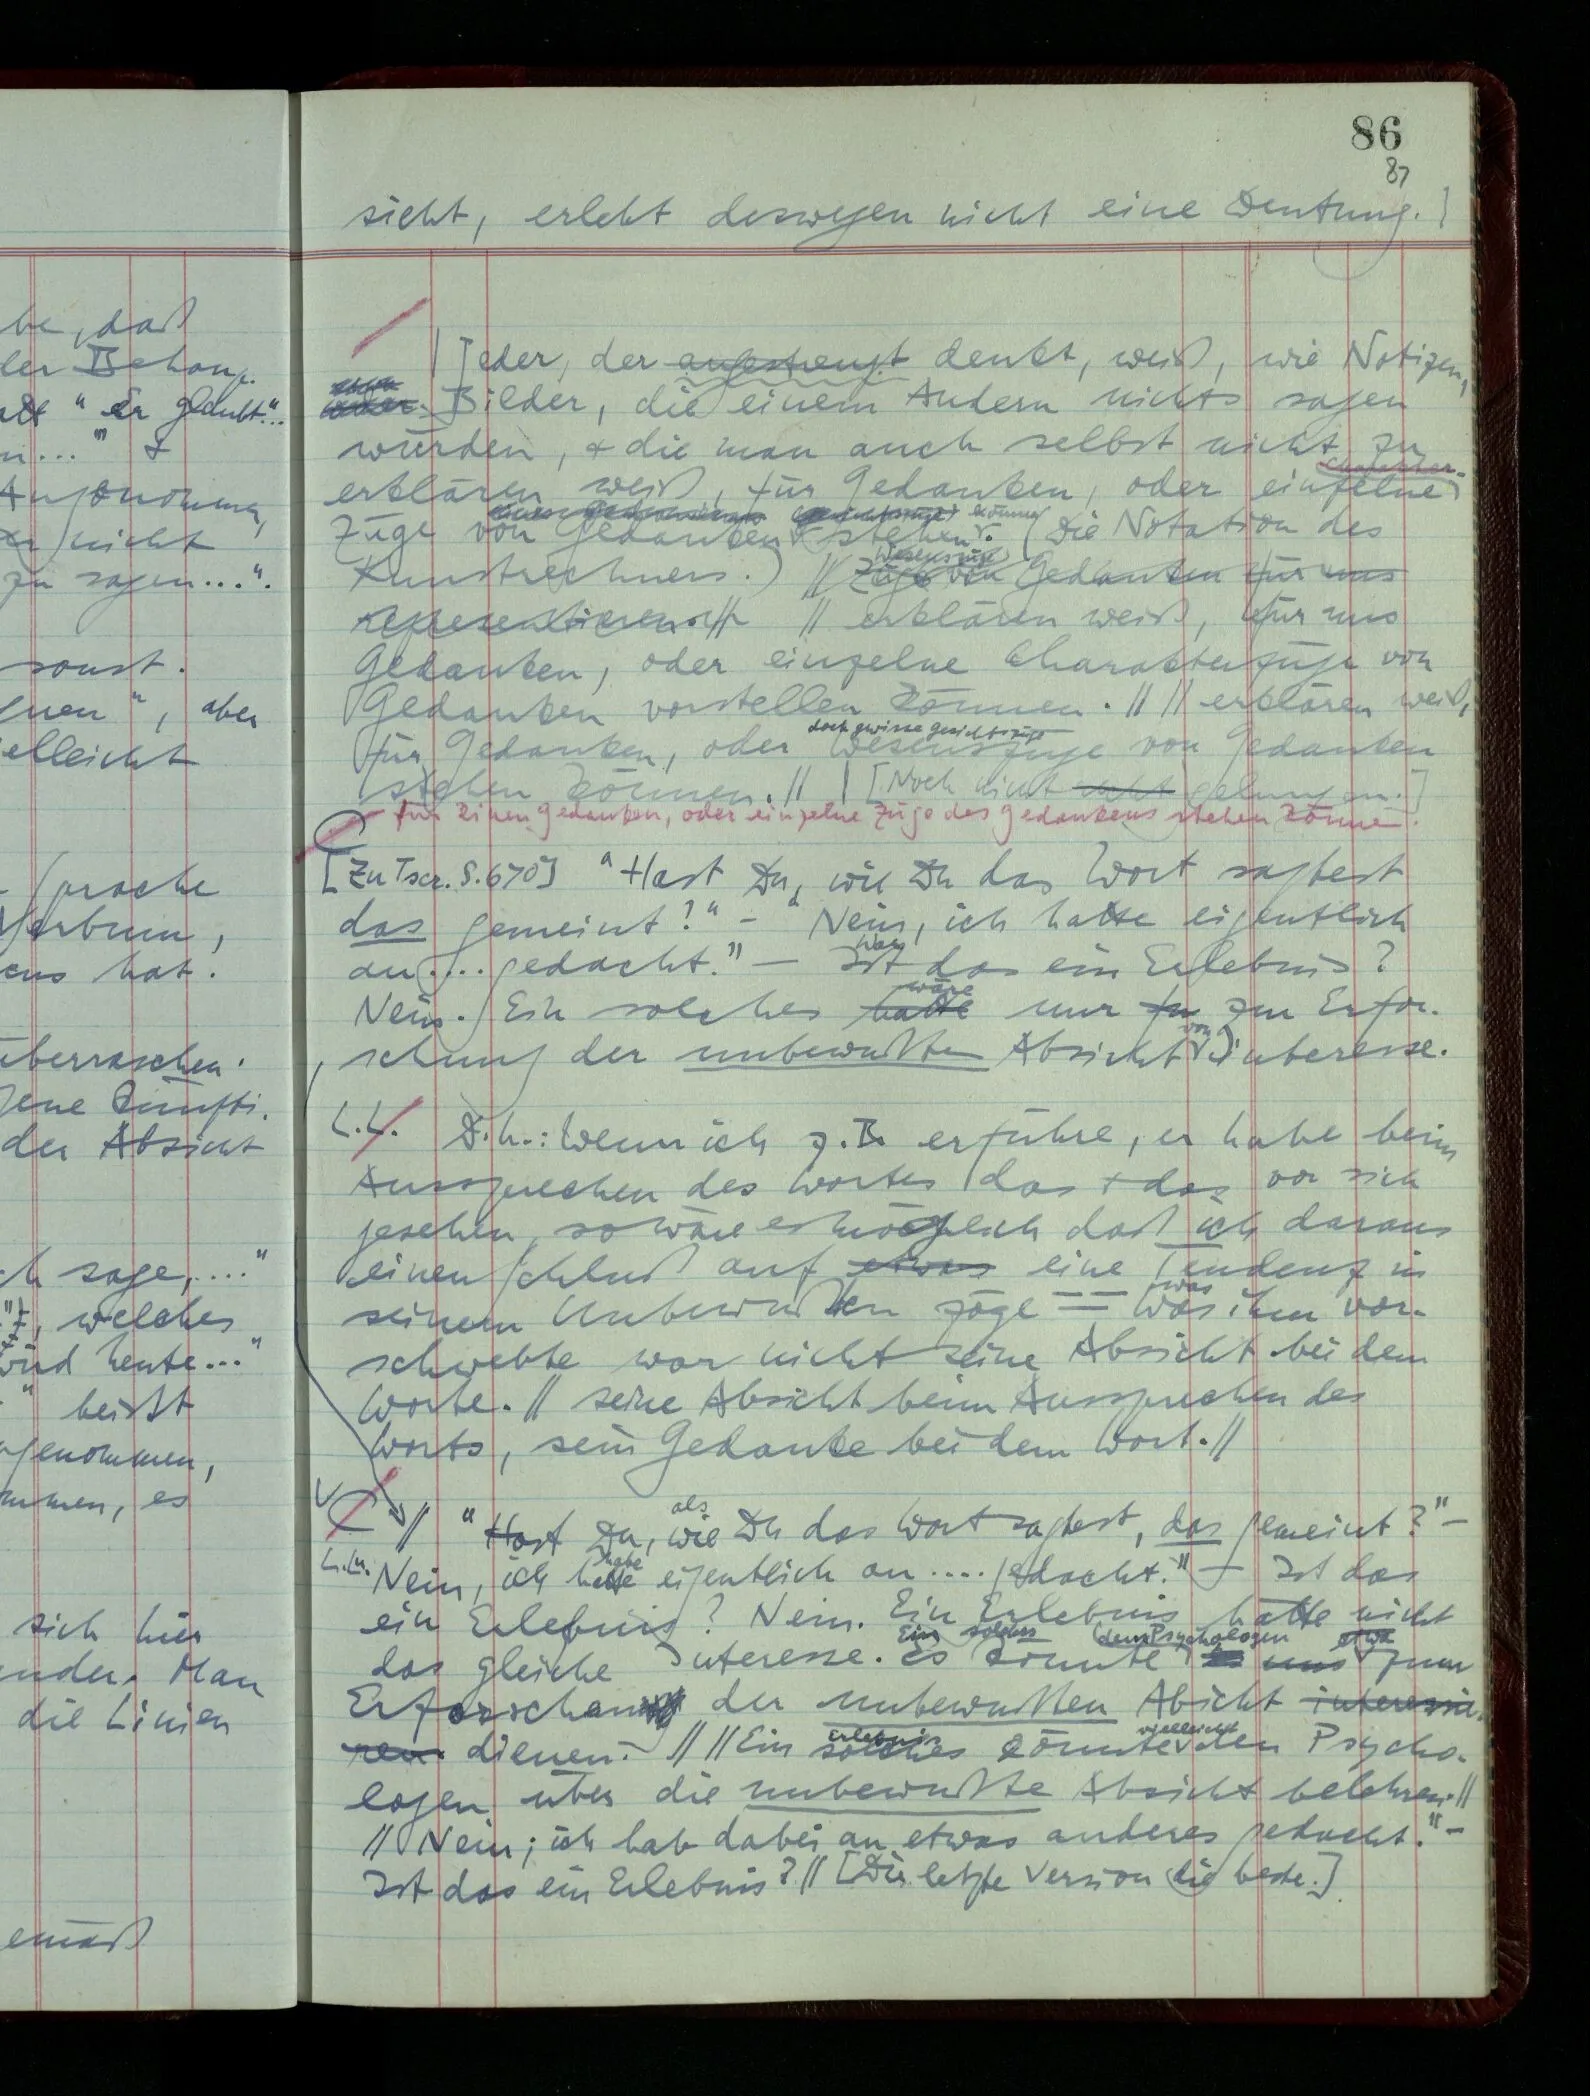 be, daß
der Behaup-
"er glaubt"...
n..." &
Angenommen,
er nicht
zu sagen...".
sonst.
", aber
vielleicht
Sprache
Verbum,
hat.
überraschen.
Jene künfti-
der Absicht
ich sage,...."
, welches
wird heute..."
" heißt
ngenommen,
mmen, es
sich hier
ander. Man
die Linien
gemäß
86
87
sieht, erlebt deswegen nicht eine Deutung.]
| Jeder, der angestrengt denkt, weiß, wie Notizen,
oder Bilder, die einem Andern nichts sagen
würden, & die man auch selbst nicht zu
Charakter-
erklären weiß, für Gedanken, oder einzelne
können
Züge von Gedanken stehen. (Die Notation des
Wesenszüge
Kunstrechners.) // Züge von Gedanken für uns
repräsentieren. // // erklären weiß, für uns
Gedanken, oder einzelne Charakterzüge von
Gedanken vorstellen können. // // erklären weiß,
doch gewisse Gesichtszüge
für Gedanken, oder Wesenszüge von Gedanken
stehen können. // | [Noch nicht gelungen.]
für einen Gedanken, oder einzelne Züge des Gedankens stehen könne.
[Zu Tscr. S. 670] "Hast Du, wie Du das Wort sagtest
das gemeint?" – "Nein, ich hatte eigentlich
war
an.... gedacht." – Ist das ein Erlebnis?
wäre
Nein. Ein solches hätte nur zur Erfor-
von
schung der unbewußten Absicht Interesse.
L.L. D.h.: Wenn ich z.B. erführe, er habe beim
Aussprechen des Wortes das & das vor sich
gesehen, so wäre es möglich daß ich daraus
einen Schluß auf etwas eine Tendenz in
was
seinem Unbewußten zöge == Was ihm vor-
schwebte war nicht seine Absicht bei dem
Worte. // seine Absicht beim Aussprechen des
Worts, sein Gedanke bei dem Wort. //
als
// "Hast Du, wie Du das Wort sagtest, das gemeint?" –
habe
Nein, ich hatte eigentlich an.... gedacht." – Ist das
ein Erlebnis? Nein. Ein Erlebnis hätte nicht
Ein solches dem Psychologen etwa
das gleiche Interesse. Es könnte es uns zum
Erforschen der unbewußten Absicht interessie-
Erlebnis vielleicht
ren. dienen. // // Ein solches könnte den Psycho-
logen über die unbewußte Absicht belehren. //
// Nein; ich hab dabei an etwas anderes gedacht." –
Ist das ein Erlebnis? // [Die letzte Version die beste.]